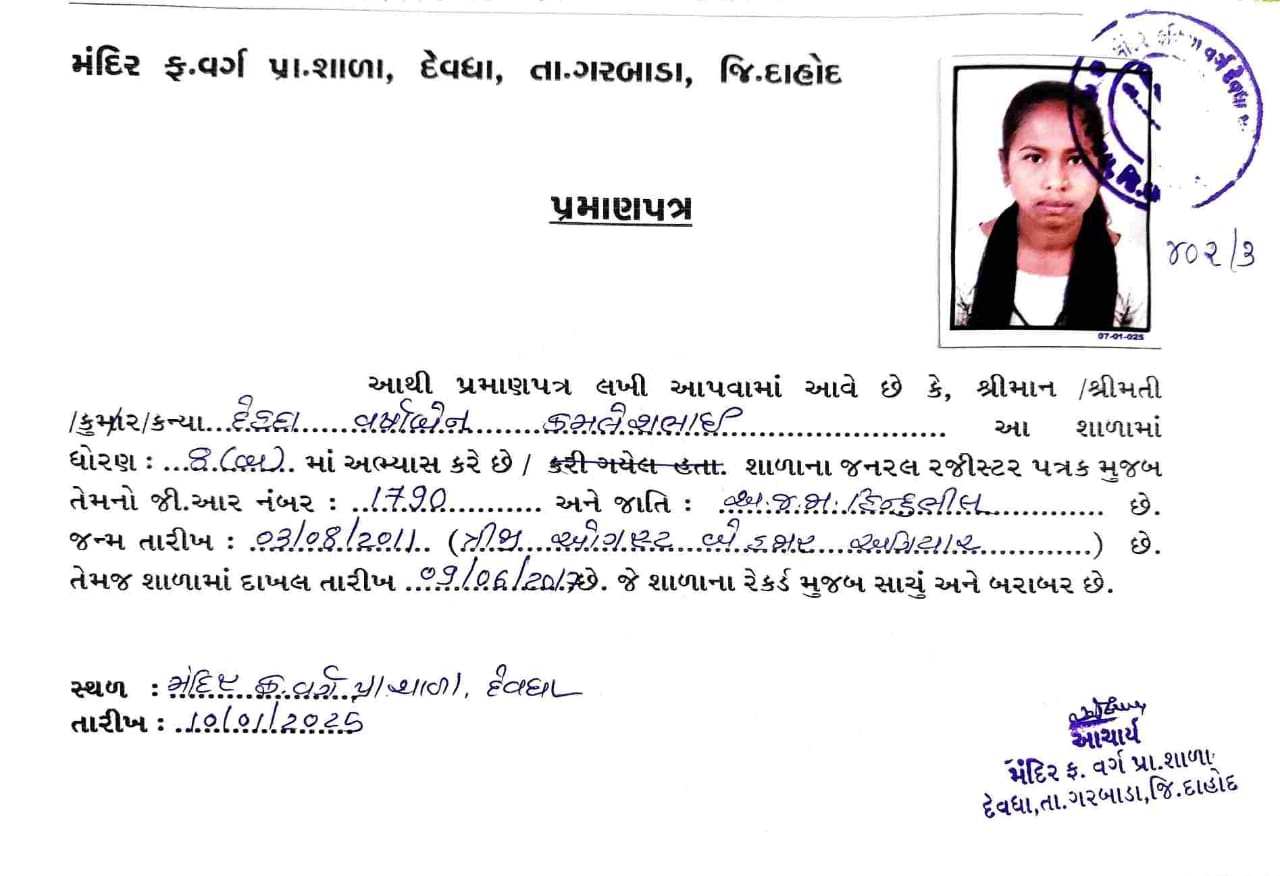 મંદિર ફ.વર્ગ પ્રા.શાળા, દેવધા, તા.ગરબાડા, જિ.દાહોદ
પ્રમાણપત્ર
૪૦૨/૩
07-01-025
આથી પ્રમાણપત્ર લખી આપવામાં આવે છે કે, શ્રીમાન /શ્રીમતી
/કુમાર/કન્યા... વર્ષાબેન કમલેશભાઈ... આ શાળામાં
ધોરણ : ...8.(બ).. માં અભ્યાસ કરે છે / કરી ગયેલ હતા. શાળાના જનરલ રજીસ્ટર પત્રક મુજબ
તેમનો જી.આર નંબર : ..1790........... અને જાતિ : અ.જ.જા. હિન્દુ ભીલ............... છે.
જન્મ તારીખ : ..03/08/2011.. (ત્રીજી ઓગસ્ટ બે હજાર અગિયાર............) છે.
તેમજ શાળામાં દાખલ તારીખ ..09/06/2017છે. જે શાળાના રેકર્ડ મુજબ સાચું અને બરાબર છે.
સ્થળ : મંદિર ફ.વર્ગ પ્રા.શાળા, દેવધા
તારીખ : ..10/01/2025
આચાર્ય
મંદિર ફ. વર્ગ પ્રા.શાળા
દેવધા,તા.ગરબાડા,જિ.દાહોદ